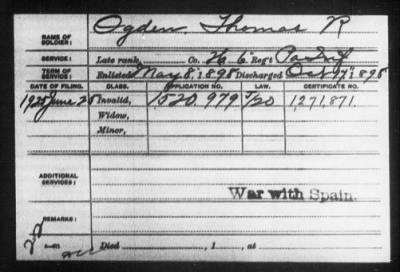 NAME OF SOLDIER: Ogden, Thomas R
SERVICE: Late rank, Co. H, 6" Reg't Pa Inf
TERM OF SERVICE: Enlisted May 8, 1898 Discharged Oct 17", 1898
DATE OF FILING. CLASS. APPLICATION NO. LAW. CERTIFICATE NO.
1925 June 25 Invalid, 1520,979 1,271,871.
Widow,
Minor,
ADDITIONAL SERVICES:
War with Spain.
REMARKS:
Died , 1 , at